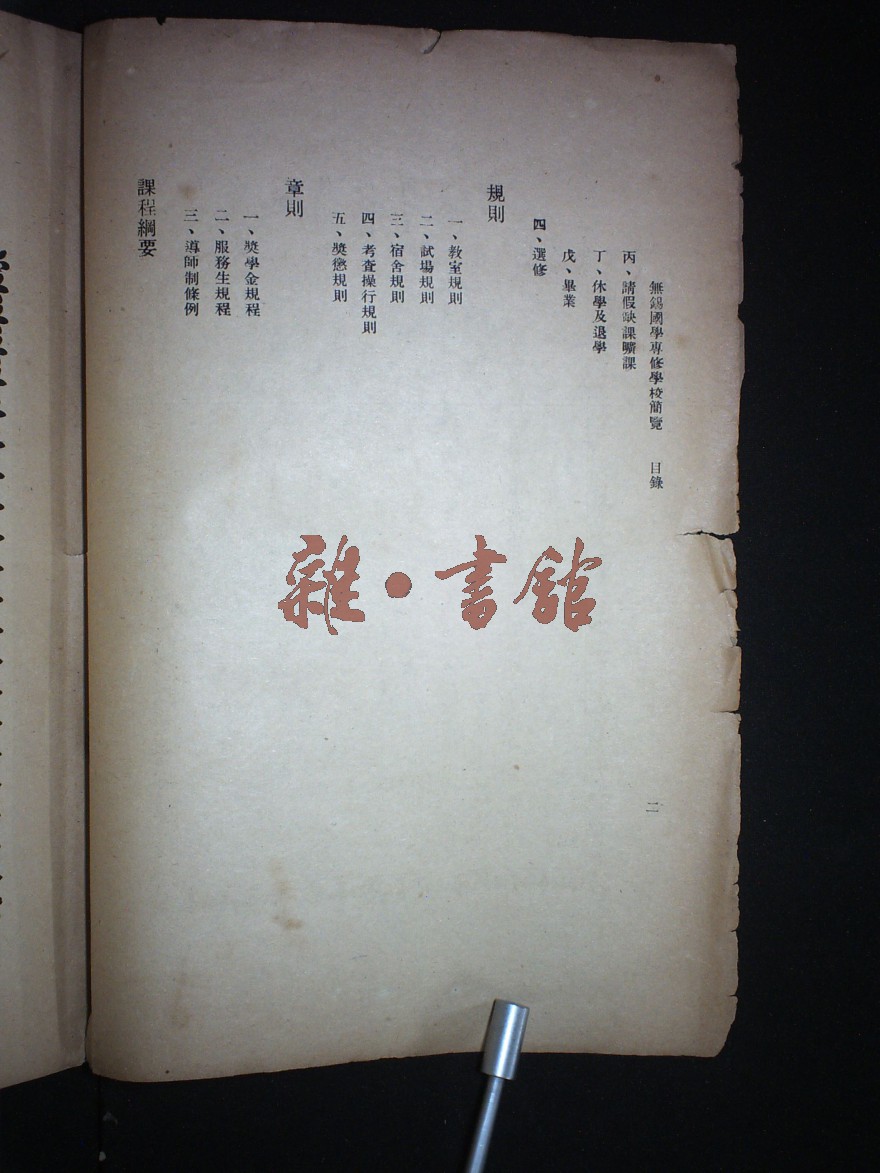 無錫國學專修學校簡覽　目錄
二
丙、請假缺課曠課
丁、休學及退學
戊、畢業
四、選修
規則
一、教室規則
二、試場規則
三、宿舍規則
四、考查操行規則
五、獎懲規則
章則
一、獎學金規程
二、服務生規程
三、導師制條例
課程綱要
雜・書館